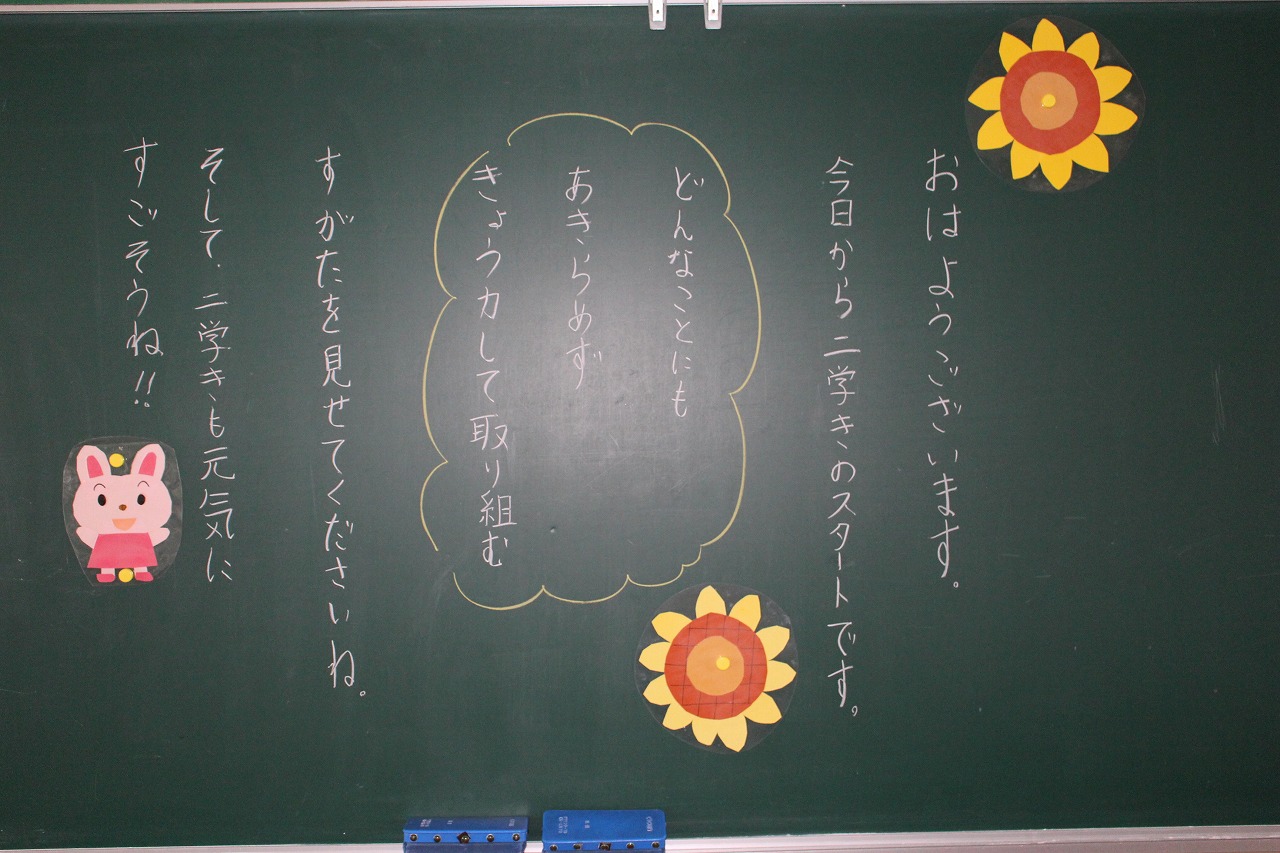 おはようございます。
今日から二学きのスタートです。
どんなことにも
あきらめず
きょう力して取り組む
すがたを見せてくださいね。
そして、二学きも元気に
すごそうね!!